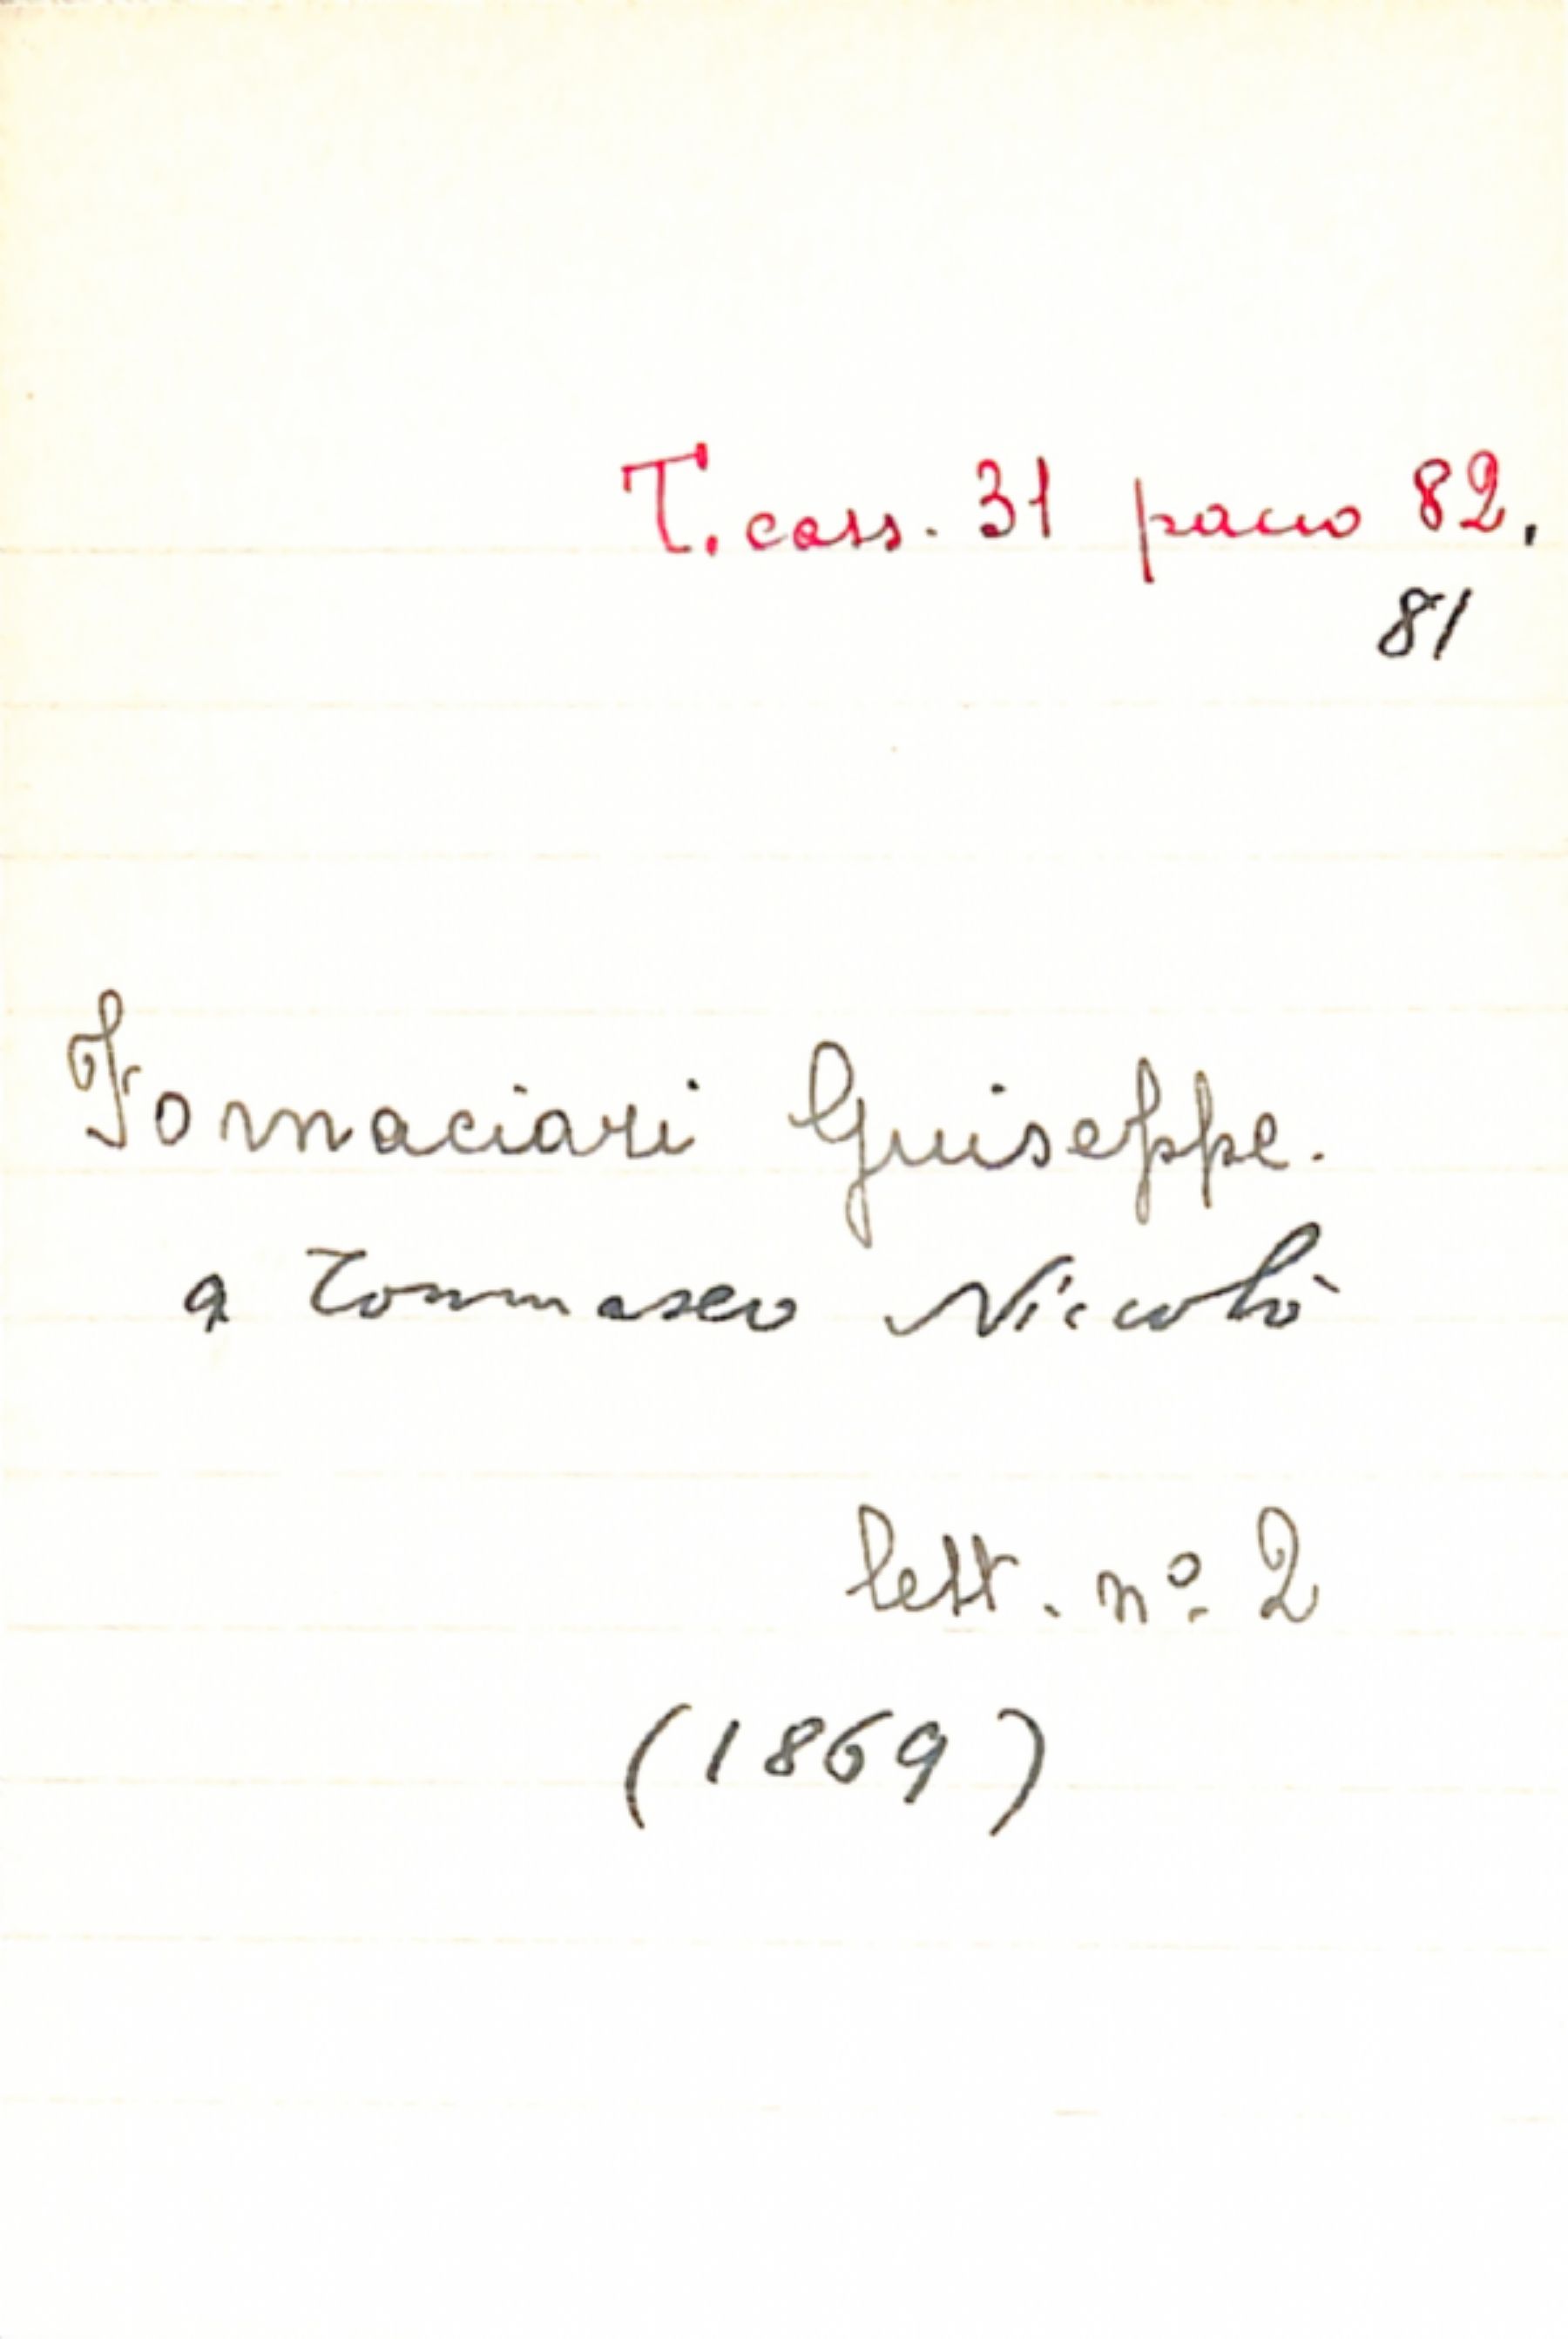 T. cass. 31 pacco 82.
81
Fornaciari Giuseppe.
a Tommaseo Niccolò
lett. nº 2
(1869)